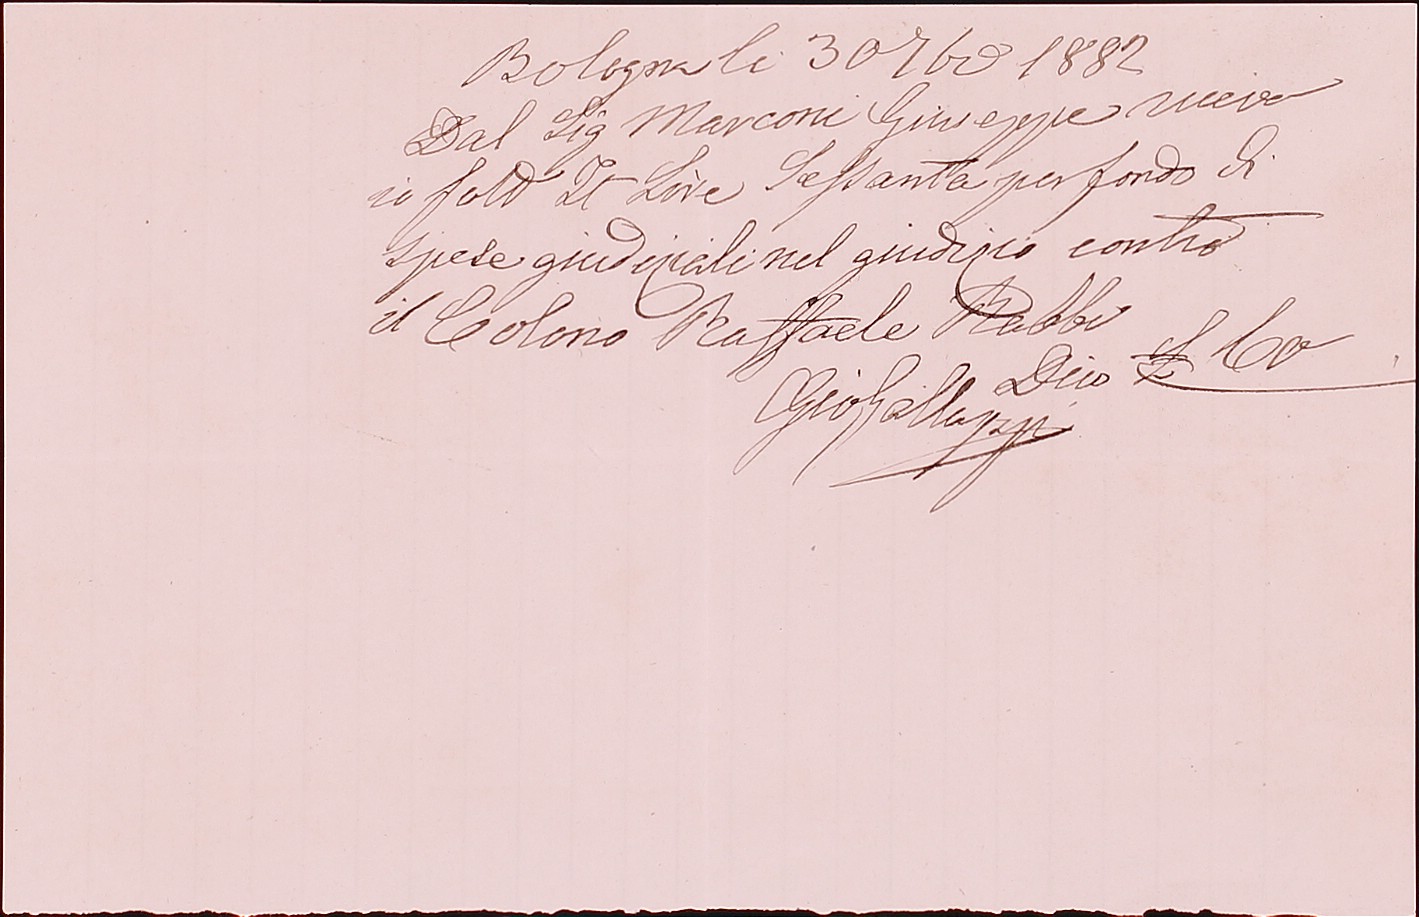 Bologna li 30 7bre 1882
Dal Sig Marconi Giuseppe ricevo
io It Lire Sessanta per fondo di
spese giudiziali nel giudizio contro
il Colono Raffaele Rabbi
Dico £ 60
Gio Gallazzi